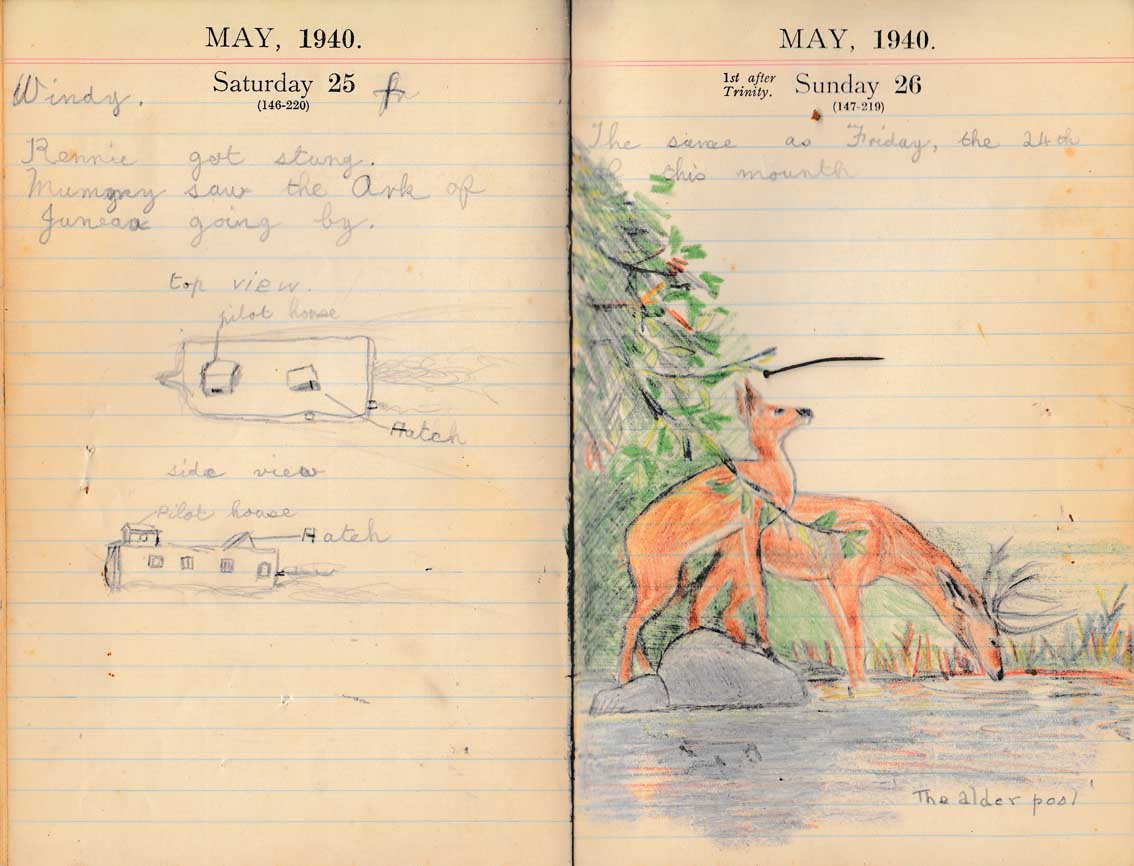 MAY, 1940.
Saturday 25
(146-220)
Windy.
Rennie got stung.
Mummy saw the Ark of
Juneau going by.
top view.
pilot house
Hatch
side view
Pilot house
Hatch
MAY, 1940.
1st after
Trinity.
Sunday 26
(147-219)
The same as Friday, the 24th
this mounth
The alder pool